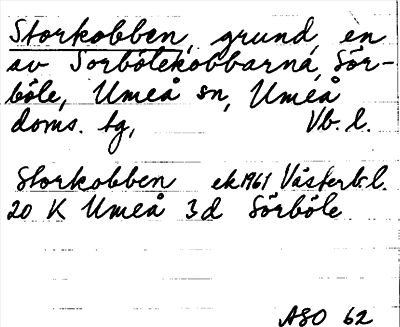 Storkobben, grund, en
av Sörbölekobbarna, Sör-
böle, Umeå sn, Umeå
doms. tg, Vb. l.
Storkobben ek 1961 Västerb. l.
20 K Umeå 3d Sörböle
ASO 62